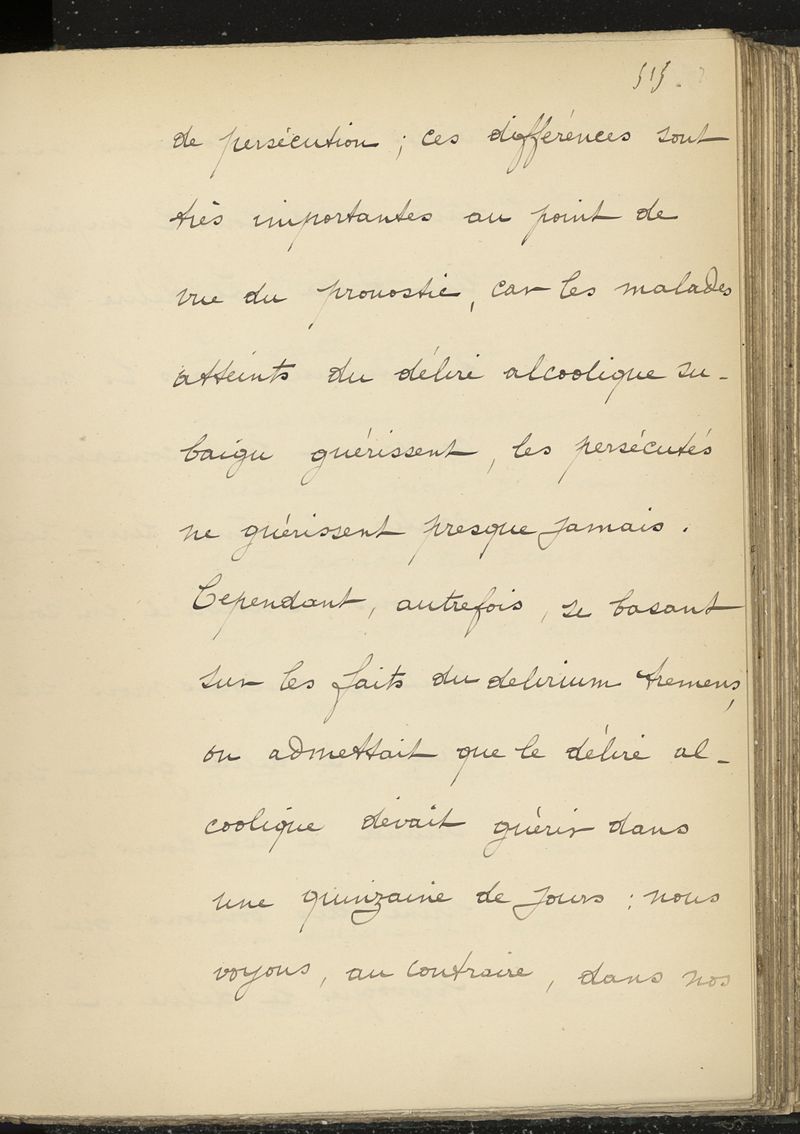 515.
de persécution ; ces différences sont
très importantes au point de
vue du pronostic, car les malades
atteints du délire alcoolique su-
baigu guérissent, les persécutés
ne guérissent presque jamais.
Cependant, autrefois, se basant
sur les faits du delirium tremens,
on admettait que le délire al-
coolique devait guérir dans
une quinzaine de jours : nous
voyons, au contraire, dans nos